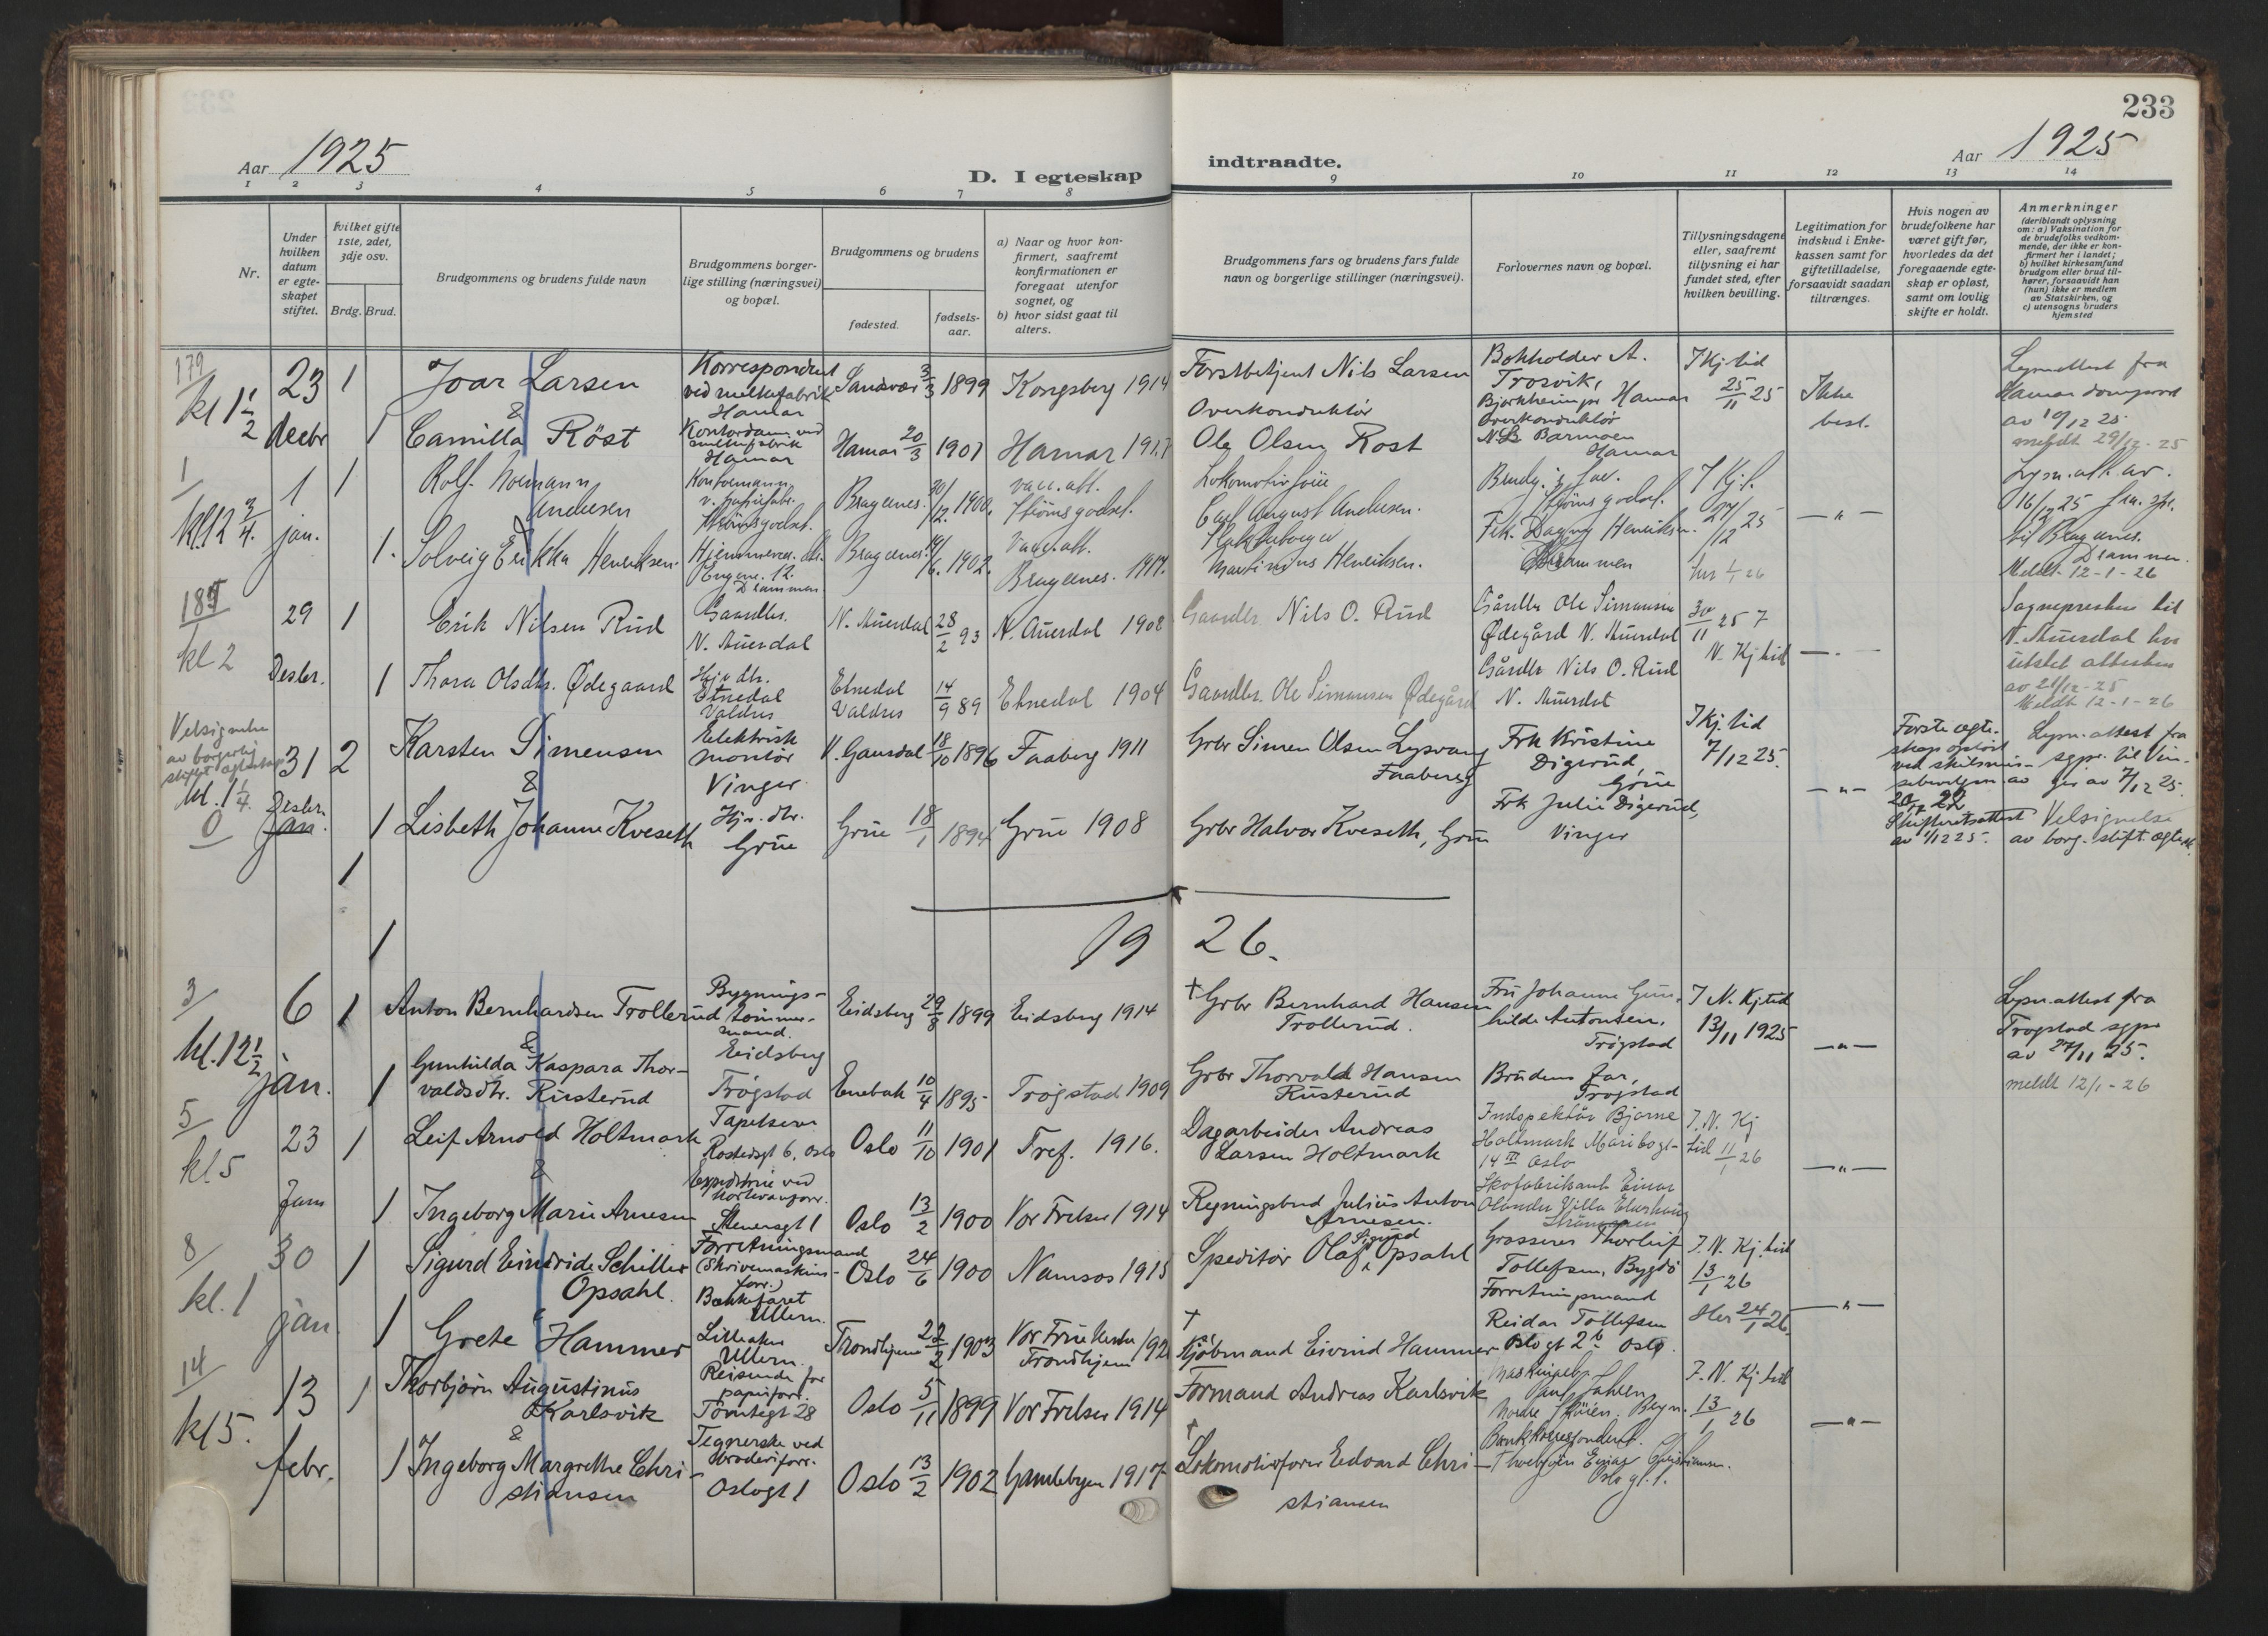 233
Aar 1925
D. I egteskap indtraadte.
Aar 1925
1 2 3 4 5 6 7 8 9 10 11 12 13 14
Nr.
Under hvilken datum er egteskapet stiftet.
Hvilket gifte 1ste, 2det, 3dje osv.
Brdg. Brud.
Brudgommens og brudens fulde navn
Brudgommens borgerlige stilling (næringsvei) og bopæl.
Brudgommens og brudens
fødested.
fødselsaar.
a) Naar og hvor konfirmert, saafremt konfirmationen er foregaat utenfor sognet, og
b) hvor sidst gaat til alters.
Brudgommens fars og brudens fars fulde navn og borgerlige stillinger (næringsvei).
Forlovernes navn og bopæl.
Tillysningsdagene eller, saafremt tillysning ei har fundet sted, efter hvilken bevilling.
Legitimation for indskud i Enkekassen samt for giftetilladelse, forsaavidt saadan tiltrænges.
Hvis nogen av brudefolkene har været gift før, hvorledes da det foregaaende egteskap er opløst, samt om lovlig skifte er holdt.
Anmerkninger
(deriblandt oplysning om: a) Vaksination for de brudefolks vedkommende, der ikke er konfirmert her i landet; b) hvilket kirkesamfund brudgom eller brud tilhører, forsaavidt han (hun) ikke er medlem av Statskirken, og c) utensogns bruders hjemsted
179
kl 1 1/2
23 Decbr
1
Joar Larsen
&
Korrespondent ved melkefabrik Hamar
Sandsvær 3/3 1899
Kongsberg 1914
Forstbetjent Nils Larsen
Bokholder A. Trosvik, Bjerkheimgr Hamar
I Kj. tid 25/11 25
Ikke best.
Lysn.attest fra Hamar domprost av 19/12 25
meldt 29/12 - 25
1
Camilla Röst
Kontordame ved melkefabrik Hamar
Hamar 20/3 1901
Hamar 1917
Overkonduktör Ole Olsen Rost
Overkonduktör Barmoen Hamar
1
kl 12 3/4
1 jan.
1
Rolf Normann Andersen
&
Kontormann v. Strömsgodset.
Bragernes. 30/12 1900.
vacc. att. Strömsgodset.
Carl August Andersen.
Brudg. far. Strömsgodset.
I Kj. t. 27/12 25
— " —
Lysn. att. av 16/12 25 fra til Bragernes. Drammen.
Meldt 12-1-26
1.
Solveig Erikka Henriksen.
Hjemmevær. Engene. 12. Drammen
Bragernes. 1902.
Vacc. att. Bragernes. 1917.
Martinius Henriksen.
Frk. Dagny Henriksen. Drammen
her 1/1 26
kl 2
29 Desbr.
1
Erik Nilsen Rud
Gaardbr. N. Aurdal
N. Aurdal 28/2 93
N. Aurdal 1908
Gaardbr. Nils O. Rud
Gårdbr Ole Simensen Ødegård N. Aurdal
30/11 25
N. Kj tid
— " —
Sogneprest til N. Aurdal har utstet attesten av 21/12-25
Meldt 12-1-26
1
Thora Olsdtr. Ødegaard
Hjv. dtr. Etnedal Valdres
Etnedal Valdres 14/9 89
Etnedal 1904
Gaardbr. Ole Simensen Ødegård
Gårdbr Nils O. Rud N. Aurdal
Velsignelse av borgerlig stiftet ægteskap
kl. 1 1/4
0
31 Desbr. Jan.
2
Karsten Simensen
&
Elektrisk montör Vinger
V. Gausdal 18/10 1896
Faaberg 1911
Grbr Simen Olsen Lysvang Faaberg
Frk Kristine Digerud, Grue
I Kj. tid 7/12 25.
— " —
Første ægteskap opløst ved skilsmissebevilgn. av 20/12 22
Skifteretsattest av 1/12 25.
Lysn. attest fra sgpr. til Vinger av 7/12 25.
Velsignelse av borg. stift. ægtesk.
1
Lisbeth Johanne Kveseth
Hjv. dtr. Grue
Grue 18/1 1894
Grue 1908
Grbr Halvor Kveseth, Grue
Frk Julie Digerud, Vinger
1
1
1926.
3
kl. 12 1/2
6 jan.
1
Anton Bernhardsen Trollerud
&
Bygningstömmermand. Eidsberg
Eidsberg 29/8 1899
Eidsberg 1914
† Grbr Bernhard Hansen Trollerud.
Fru Johanne Gunhilde Antonsen. Trögstad
I N. Kj tid 13/11 1925
— " —
Lysn.attest fra Trögstad sgpr av 27/11 25.
meldt 12/1 - 26
1
Gunhilda Kaspara Thorvaldsdtr. Rusterud
Trögstad
Enebak 10/4 1895
Trögstad 1909
Grbr Thorvald Hansen Rusterud
Brudens far, Trögstad
5
kl 5
23 Jan
1
Leif Arnold Holtmark
&
Tapetserer Rostedsgt 6, Oslo
Oslo 11/10 1901
Tref. 1916.
Dagarbeider Andreas Larsen Holtmark
Inspektör Bjarne Holtmark Maribogt 14 III Oslo
I. N. Kj tid 11/1 26
— " —
1
Ingeborg Marie Arnesen
Expeditrice ved Stenersgt 1
Oslo 13/2 1900
Vor Frelser 1914
Regningsbud Julius Anton Arnesen.
Skofabrikant Einar Olander Villa Strömmen
8
kl. 1
30 jan.
1
Sigurd Eindride Schiller Opsahl.
&
Forretningsmand (Skrivemaskinforr.) Bækkefaret Ullern.
Oslo 24/6 1900
Namsos 1915
Speditör Olaf Sigurd Opsahl
Grosserer Thorleif Tollefsen, Bygdö
I. N. Kj. tid 13/1 26
Her 24/1 26.
— " —
1
Grete Hammer
Lilleaker Ullern.
Trondhjem 22/2 1903
Vor Frue kirke Trondhjem 192
† Kjöbmand Eivind Hammer
Forretningsmand Reidar Tollefsen Oslogt 2 b Oslo.
14
kl 5.
13 febr.
1
Thorbjörn Augustinus Karlsvik
&
Reisende for papirforr. Tomtegt 28
Oslo 5/11 1899
Vor Frelser 1914
Formand Andreas Karlsvik
I. N. Kj tid 13/1 26
— " —
1
Ingeborg Margrethe Christiansen
Tegnerske ved broderiforr. Oslogt 1
Oslo 13/2 1902
Gamlebyen 1917
† Lokomotivförer Edvard Christiansen
Bankkorrespondent. Thorbjörn Einar Christiansen. Oslo gt. 1.